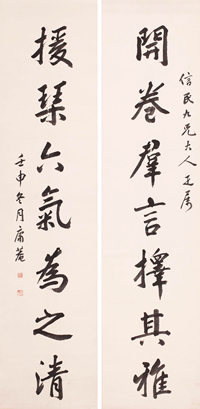 信民九兄大人正屬
開卷羣言擇其雅
援琴六氣為之清
壬申冬月庸菴